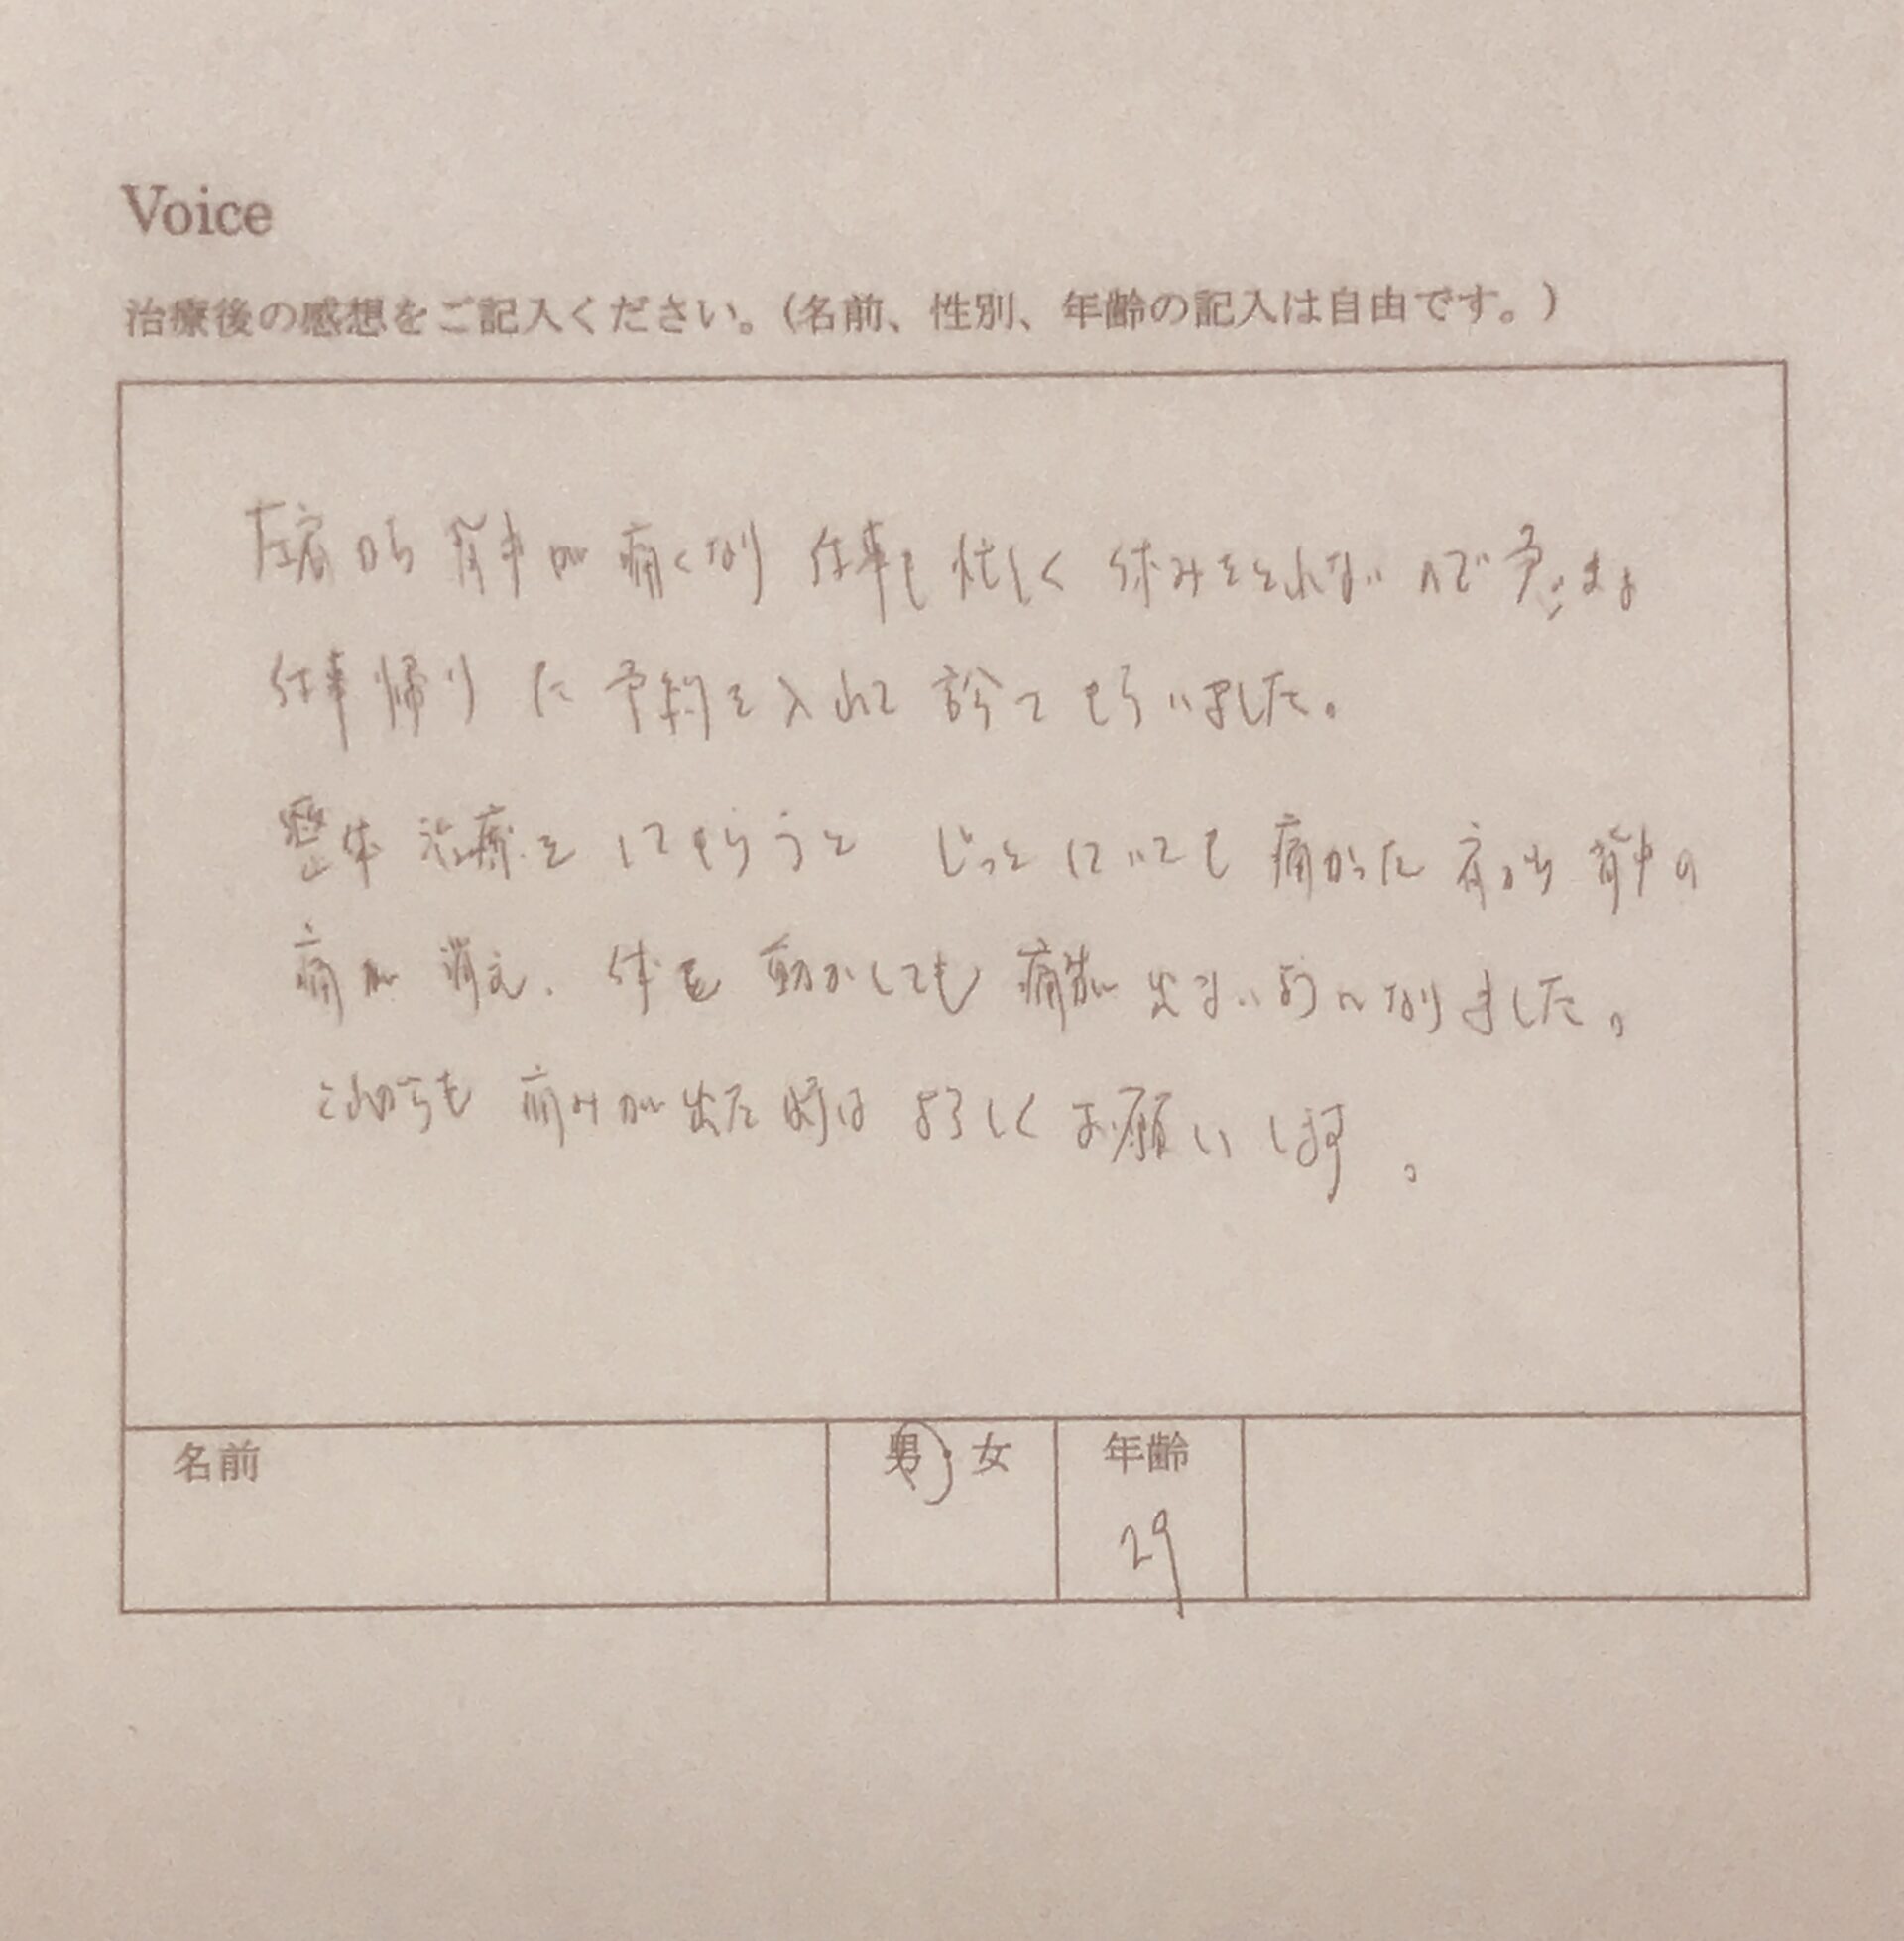 Voice
治療後の感想をご記入ください。(名前、性別、年齢の記入は自由です。)
左肩から背中が痛くなり 仕事も忙しく 休みをとれないので急きょ
仕事帰りに予約を入れて診てもらいました。
整体治療をしてもらうと じっとしていても痛かった肩から背中の
痛が消え、体を動かしても痛みが出ないようになりました。
これからも痛みが出た時はよろしくお願いします。
名前 男・女 年齢
29